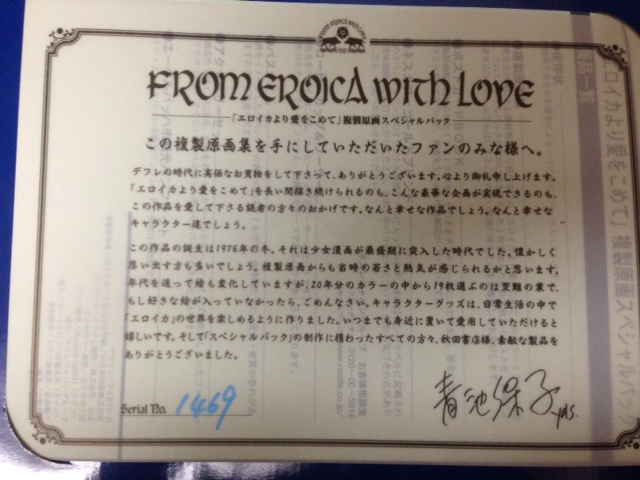 FROM EROICA WITH LOVE
「エロイカより愛をこめて」複製原画スペシャルパック
この複製原画集を手にしていただいたファンのみな様へ。
デフレの時代に高価なお買物をして下さって、ありがとうございます。心より御礼申し上げます。
「エロイカより愛をこめて」を長い間描き続けられるのも、こんな豪華な企画が実現できるのも、
この作品を愛して下さる読者の方々のおかげです。なんと幸せな作品でしょう。なんと幸せな
キャラクター達でしょう。
この作品の誕生は1976年の冬。それは少女漫画が最盛期に突入した時代でした。懐かしく
思い出す方も多いでしょう。複製原画からも当時の若さと熱気が感じられるかと思います。
年代を追って絵も変化していますが、20年分のカラーの中から19枚選ぶのは至難の業で、
もし好きな絵が入っていなかったら、ごめんなさい。キャラクターグッズは、日常生活の中で
「エロイカ」の世界を楽しめるように作りました。いつまでも身近に置いて愛用していただけると
嬉しいです。そして「スペシャルパック」の制作に携わったすべての方々、秋田書店様、素敵な製品を
ありがとうございました。
Serial No. 1469
青池保子